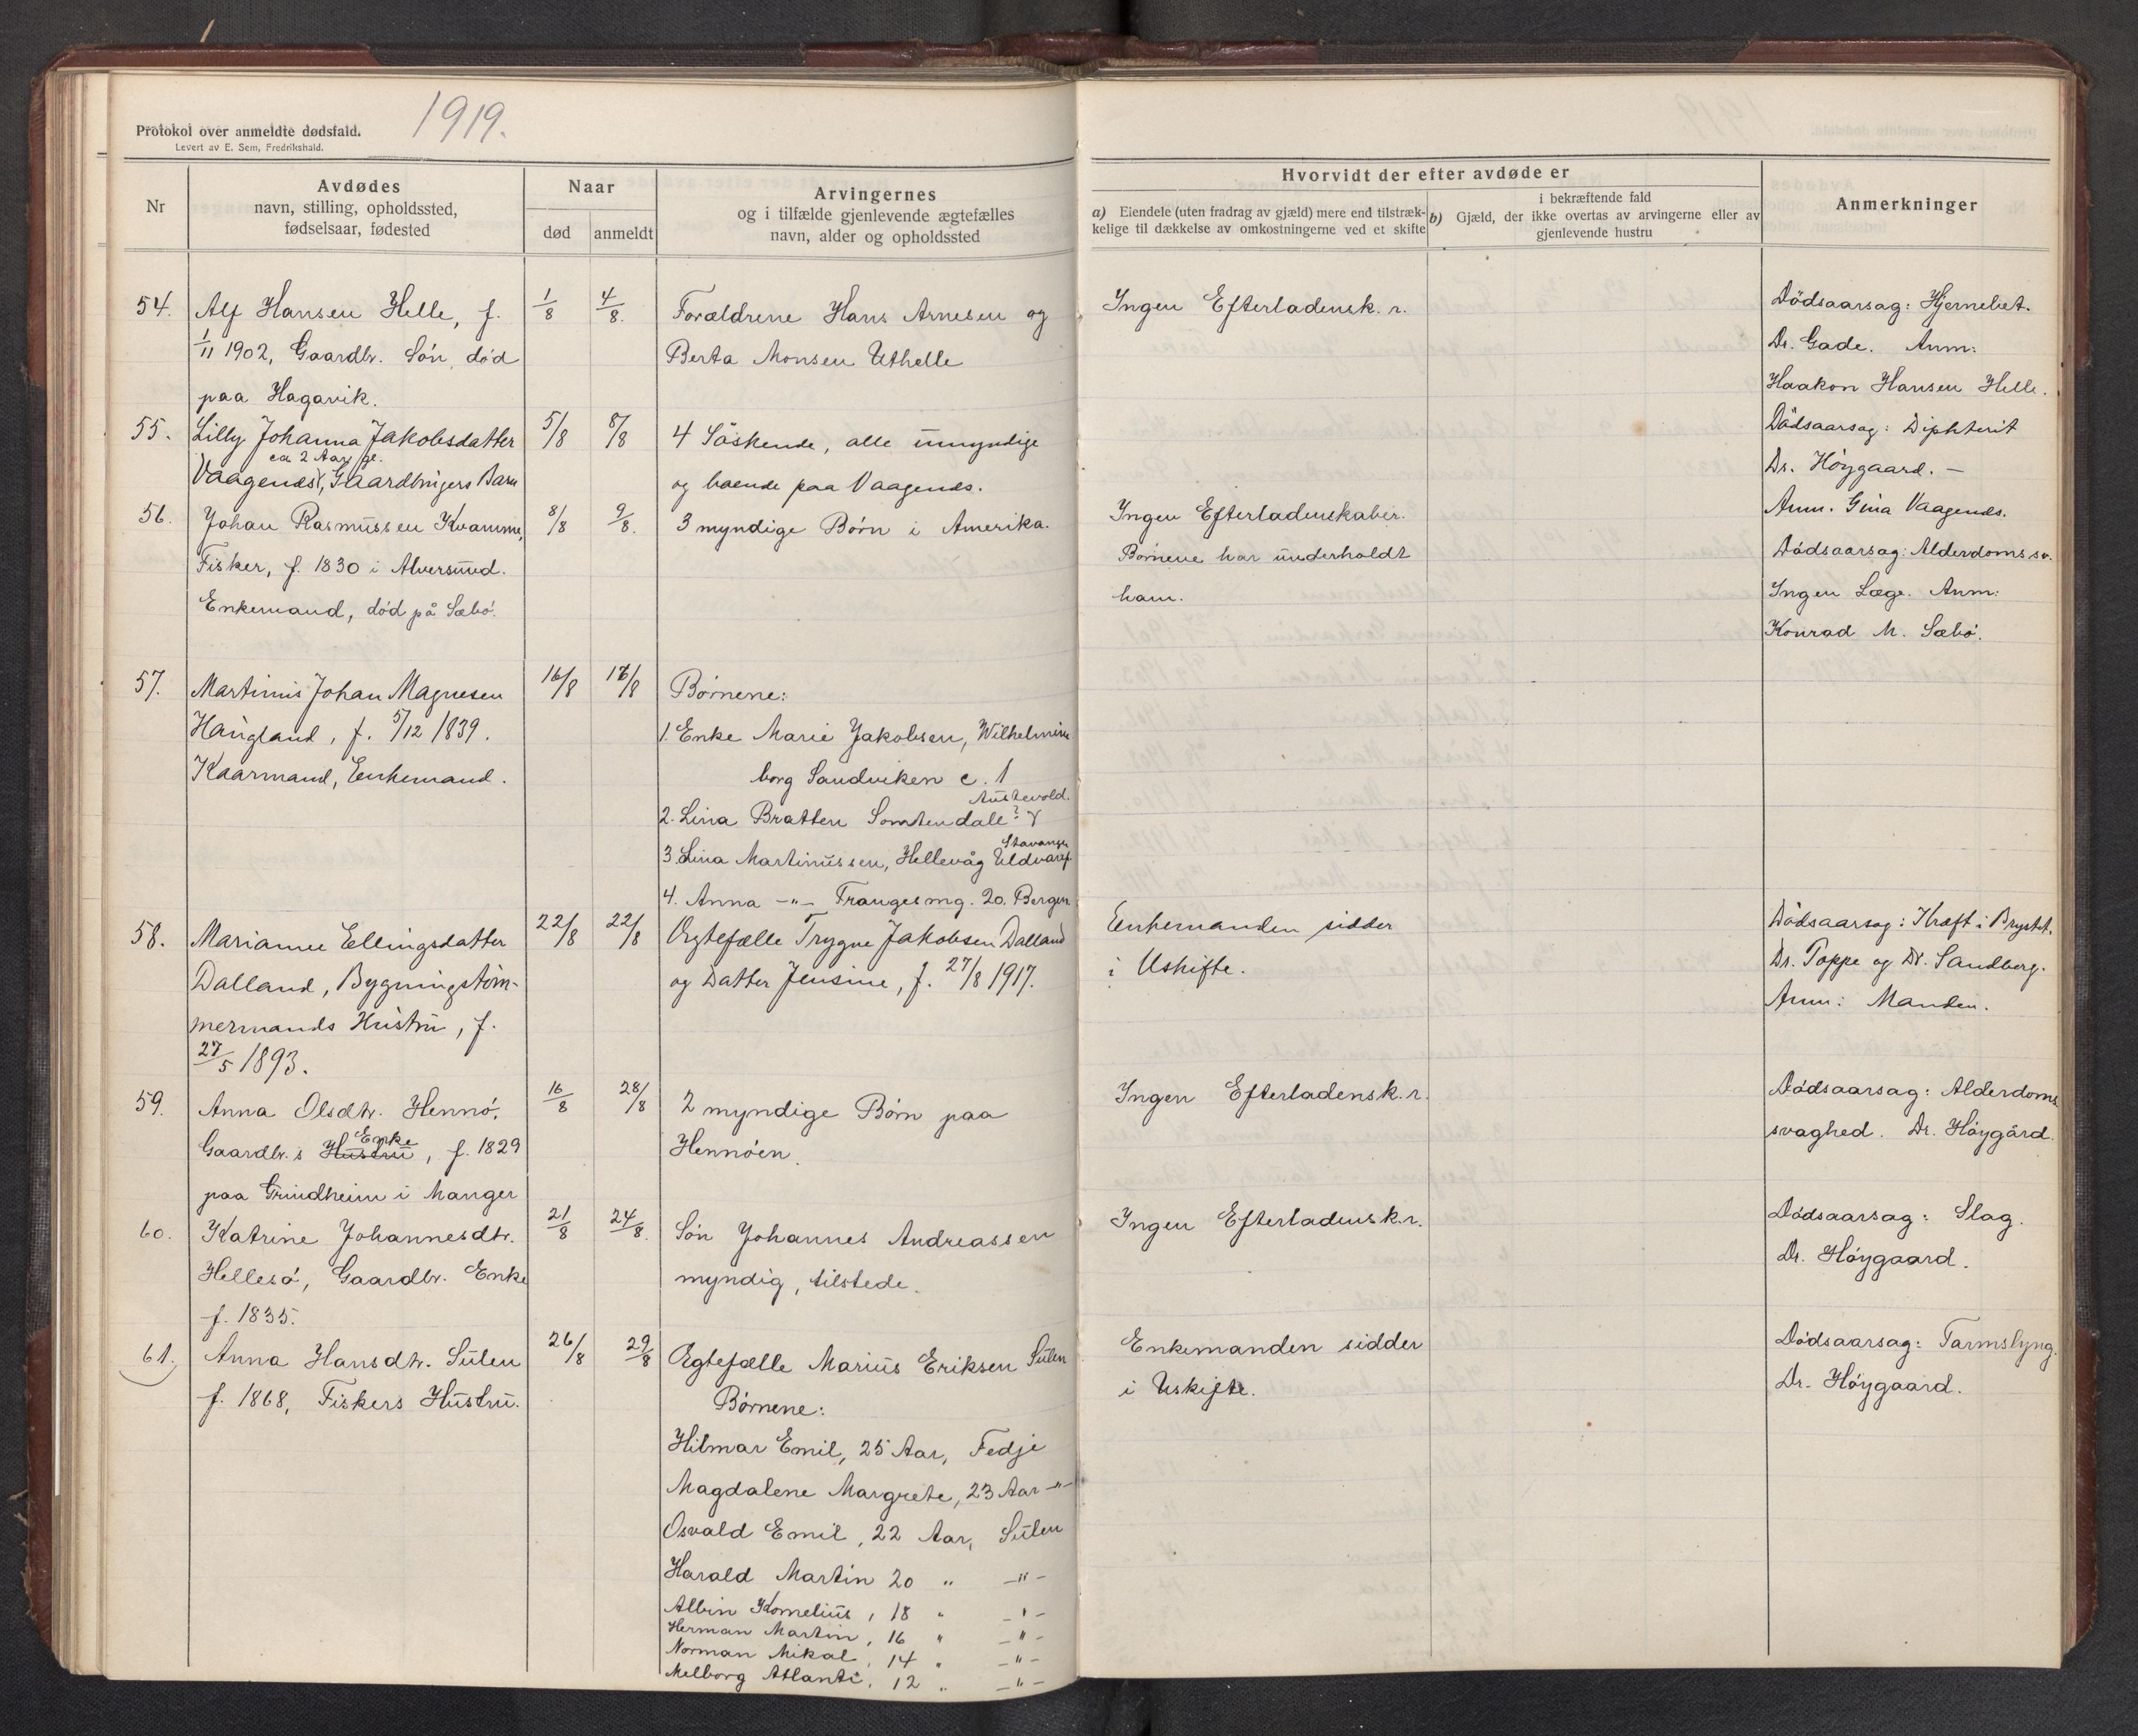 Protokol over anmeldte dødsfald.
Levert av E. Sem, Fredrikshald.
1919.
Nr
Avdødes
navn, stilling, opholdssted,
fødselsaar, fødested
Naar
død
anmeldt
Arvingernes
og i tilfælde gjenlevende ægtefælles
navn, alder og opholdssted
Hvorvidt der efter avdøde er
a) Eiendele (uten fradrag av gjæld) mere end tilstræk-
kelige til dækkelse av omkostningerne ved et skifte
i bekræftende fald
b) Gjæld, der ikke overtas av arvingerne eller av
gjenlevende hustru
Anmerkninger
54. Alf Hansen Helle, f. 1/8 4/8. Forældrene Hans Arnesen og Ingen Efterladensk.r. Dödsaarsag: Hjernebet.
1/11 1902, Gaardbr. Sön, död Berta Monsen Uthelle Dr. Gade. Anm:
paa Hagavik. Haakon Hansen Helle.
55. Lilly Johanna Jakobsdatter 5/8 8/8 4 Söskende, alle umyndige Dödsaarsag: Diphterit
ca 2 Aar gl.
Vaagenes, Gaardbrugers Barn og boende paa Vaagenes. Dr. Höygaard. —
Anm. Gina Vaagenes.
56. Johan Rasmussen Kvamme, 8/8 9/8. 3 myndige Börn i Amerika. Ingen Efterladenskaber.
Fisker, f. 1830 i Alversund. Börnene har underholdt Dödsaarsag: Alderdomssv.
Enkemand, död på Sæbö. ham. Ingen Læge. Anm:
Konrad M. Sæbö.
57. Martinus Johan Magnesen 16/8 17/8 Börnene:
Haugland, f. 5/12 1839. 1. Enke Marie Jakobsen, Wilhelmine
Kaarmand, Enkemand. borg Sandviken c. 1
Austevold.
2. Lina Bratten ?
Stavanger
3. Lina Martinussen, Hellevåg
4. Anna -"- Frangesmg. 20. Bergen
58. Marianne Ellingsdatter 22/8 22/8 Egtefælle Trygve Jakobsen Dalland Enkemanden sidder Dödsaarsag: Kræft i Brystet.
Dalland, Bygningstöm- og Datter Jensine, f. 27/8 1917. i Uskifte. Dr. Poppe og Dr. Sandberg.
mermands Hustru, f. Anm: Manden.
27/5 1893.
59. Anna Olsdtr. Hennö, 16/8 28/8 2 myndige Börn paa Ingen Efterladensk.r. Dödsaarsag: Alderdoms
Enke
Gaardbr.s Hustru, f. 1829 Hennöen. svaghed. Dr. Höygård.
paa Grindheim i Manger
60. Katrine Johannesdtr. 21/8 24/8. Sön Johannes Andreassen Ingen Efterladensk.r. Dödsaarsag: Slag.
Hellesö, Gaardbr. Enke myndig, tilstede. Dr. Höygaard.
f. 1835.
61. Anna Hansdtr. Sulen 26/8 29/8 Egtefælle Marius Eriksen Sulen Enkemanden sidder Dödsaarsag: Tarmslyng.
f. 1868, Fiskers Hustru. Börnene: i Uskifte. Dr. Höygaard.
Hilmar Emil, 25 Aar, Fedje
Magdalene Margrete, 23 Aar -"-
Osvald Emil, 22 Aar, Sulen
Harald Martin 20 " -"-
Albin Kornelius, 18 " -"-
Herman Martin, 16 " -"-
Norman Mikal, 14 " -"-
Melborg Atlanti, 12 " -"-